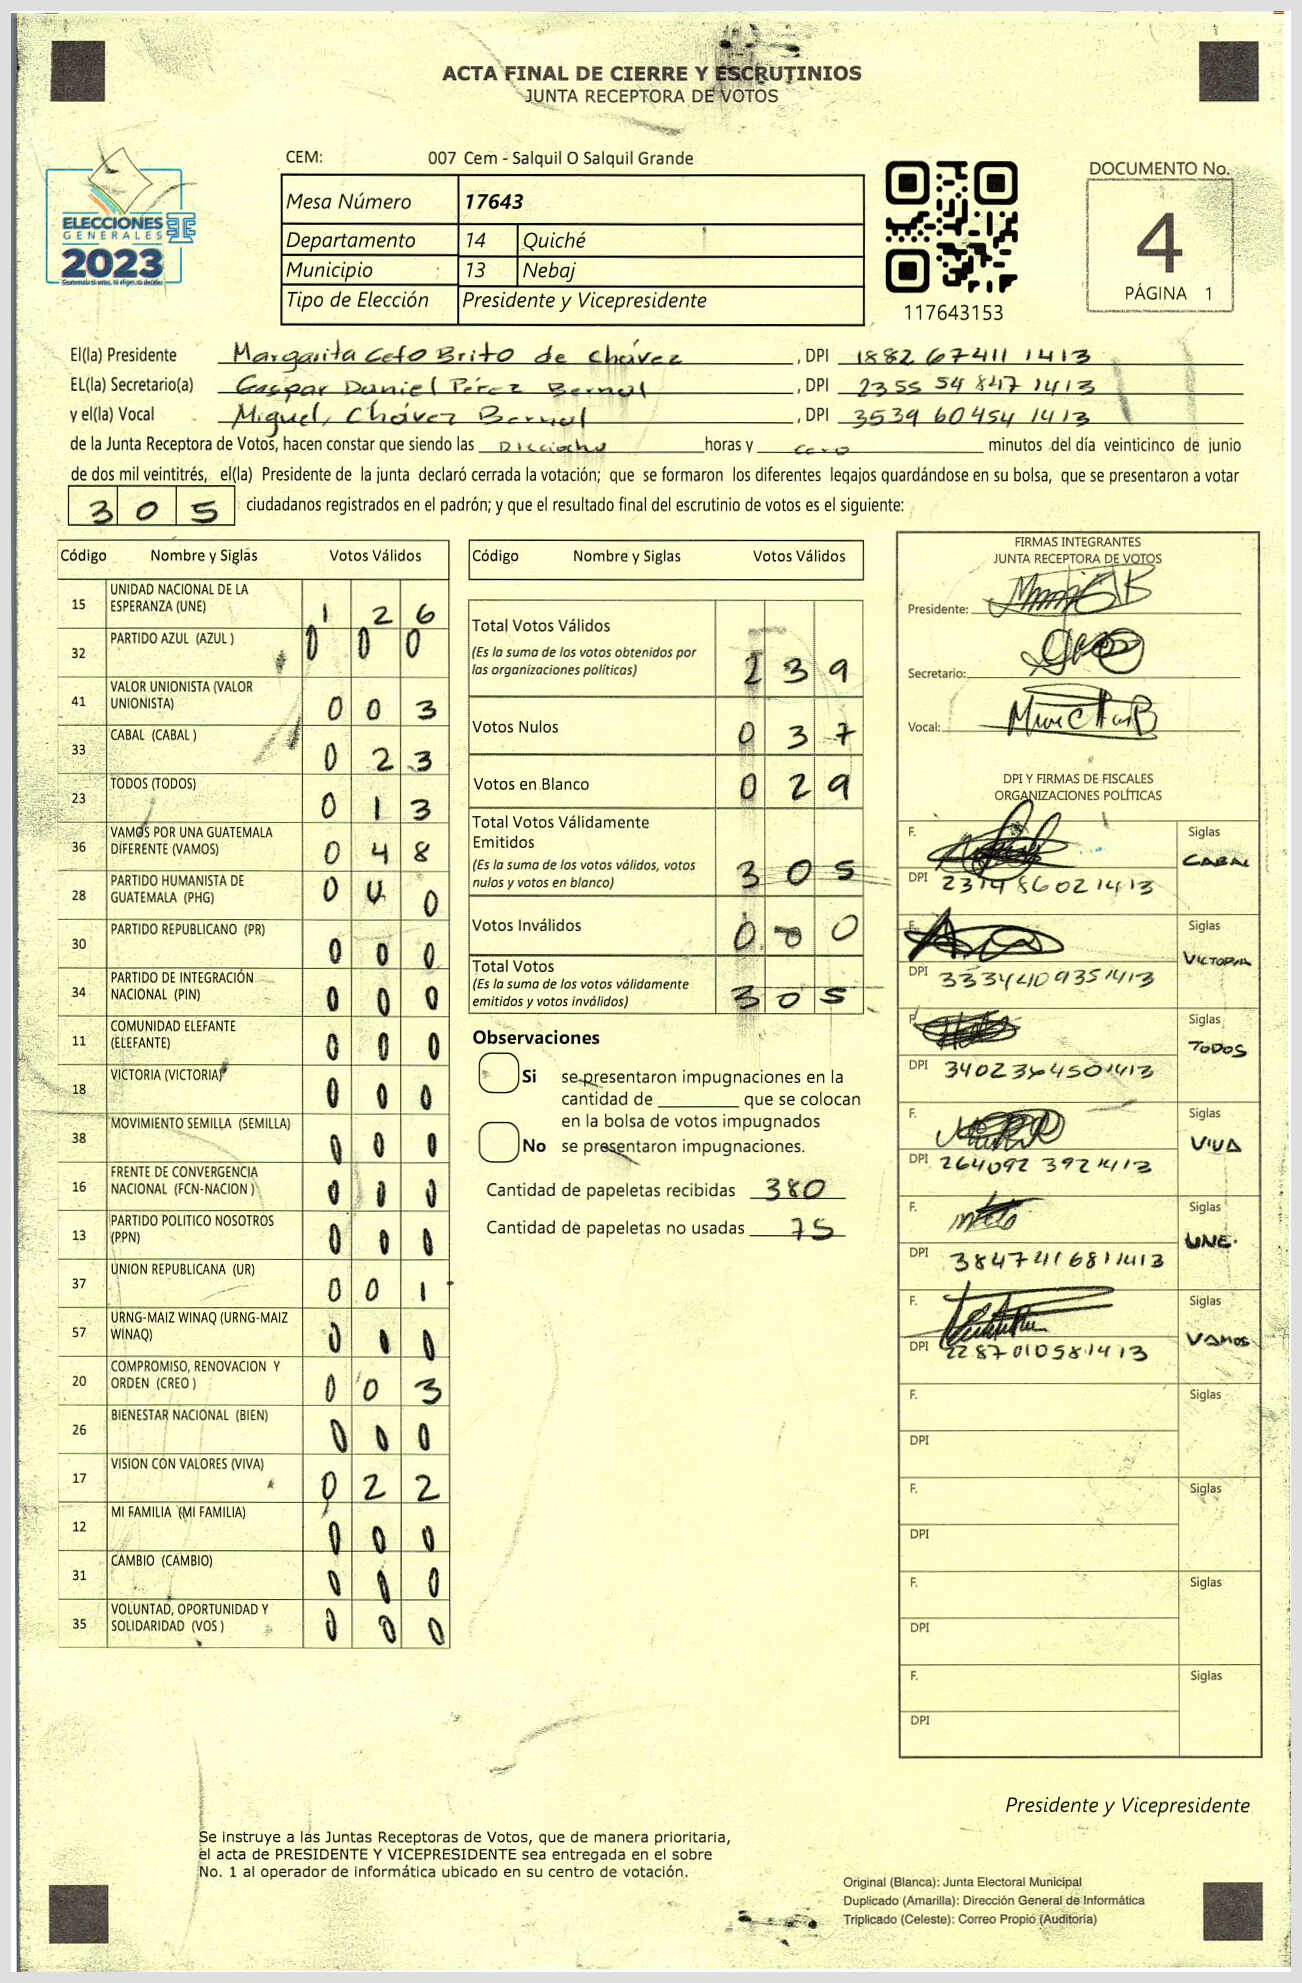 ACTA FINAL DE CIERRE Y ESCRUTINIOS
JUNTA RECEPTORA DE VOTOS
ELECCIONES
GENERALES
2023
CEM: 007 Cem - Salquil O Salquil Grande
Mesa Número 17643
Departamento 14 Quiché
Municipio 13 Nebaj
Tipo de Elección Presidente y Vicepresidente
117643153
DOCUMENTO No.
4
PÁGINA 1
El(la) Presidente Margarita Ceto Brito de Chávez, DPI 1882 67411 1413
EL(la) Secretario(a) Gaspar Daniel Pérez Bernal, DPI 2355 54847 1413
y el(la) Vocal Miguel Chávez Bernal, DPI 3539 60454 1413
de la Junta Receptora de Votos, hacen constar que siendo las Dieciocho horas y cero minutos del día veinticinco de junio
de dos mil veintitrés, el(la) Presidente de la junta declaró cerrada la votación; que se formaron los diferentes legajos guardándose en su bolsa, que se presentaron a votar
305 ciudadanos registrados en el padrón; y que el resultado final del escrutinio de votos es el siguiente:
Código Nombre y Siglas Votos Válidos
15 UNIDAD NACIONAL DE LA ESPERANZA (UNE) 1 2 6
32 PARTIDO AZUL (AZUL ) 0 0 0
41 VALOR UNIONISTA (VALOR UNIONISTA) 0 0 3
33 CABAL (CABAL ) 0 2 3
23 TODOS (TODOS) 0 1 3
36 VAMOS POR UNA GUATEMALA DIFERENTE (VAMOS) 0 4 8
28 PARTIDO HUMANISTA DE GUATEMALA (PHG) 0 0 0
30 PARTIDO REPUBLICANO (PR) 0 0 0
34 PARTIDO DE INTEGRACIÓN NACIONAL (PIN) 0 0 0
11 COMUNIDAD ELEFANTE (ELEFANTE) 0 0 0
18 VICTORIA (VICTORIA) 0 0 0
38 MOVIMIENTO SEMILLA (SEMILLA) 0 0 0
16 FRENTE DE CONVERGENCIA NACIONAL (FCN-NACION ) 0 0 0
13 PARTIDO POLITICO NOSOTROS (PPN) 0 0 0
37 UNION REPUBLICANA (UR) 0 0 1
57 URNG-MAIZ WINAQ (URNG-MAIZ WINAQ) 0 0 0
20 COMPROMISO, RENOVACION Y ORDEN (CREO ) 0 0 3
26 BIENESTAR NACIONAL (BIEN) 0 0 0
17 VISION CON VALORES (VIVA) 0 2 2
12 MI FAMILIA (MI FAMILIA) 0 0 0
31 CAMBIO (CAMBIO) 0 0 0
35 VOLUNTAD, OPORTUNIDAD Y SOLIDARIDAD (VOS ) 0 0 0
Código Nombre y Siglas Votos Válidos
Total Votos Válidos 2 3 9
(Es la suma de los votos obtenidos por
las organizaciones políticas)
Votos Nulos 0 3 7
Votos en Blanco 0 2 9
Total Votos Válidamente
Emitidos
(Es la suma de los votos válidos, votos
nulos y votos en blanco) 3 0 5
Votos Inválidos 0 0 0
Total Votos
(Es la suma de los votos válidamente
emitidos y votos inválidos) 3 0 5
Observaciones
Si se presentaron impugnaciones en la
cantidad de ________ que se colocan
en la bolsa de votos impugnados
No se presentaron impugnaciones.
Cantidad de papeletas recibidas 380
Cantidad de papeletas no usadas 75
FIRMAS INTEGRANTES
JUNTA RECEPTORA DE VOTOS
Presidente:
Secretario:
Vocal:
DPI Y FIRMAS DE FISCALES
ORGANIZACIONES POLÍTICAS
F. Siglas CABAL
DPI 231486021413
F. Siglas VICTORIA
DPI 3334409351413
F. Siglas TODOS
DPI 3402364501413
F. Siglas VIVA
DPI 264092 3921413
F. Siglas UNE.
DPI 3847411681 1413
F. Siglas VAMOS
DPI 2287010581413
F. Siglas
DPI
F. Siglas
DPI
F. Siglas
DPI
F. Siglas
DPI
Presidente y Vicepresidente
Se instruye a las Juntas Receptoras de Votos, que de manera prioritaria,
el acta de PRESIDENTE Y VICEPRESIDENTE sea entregada en el sobre
No. 1 al operador de informática ubicado en su centro de votación.
Original (Blanca): Junta Electoral Municipal
Duplicado (Amarilla): Dirección General de Informática
Triplicado (Celeste): Correo Propio (Auditoria)